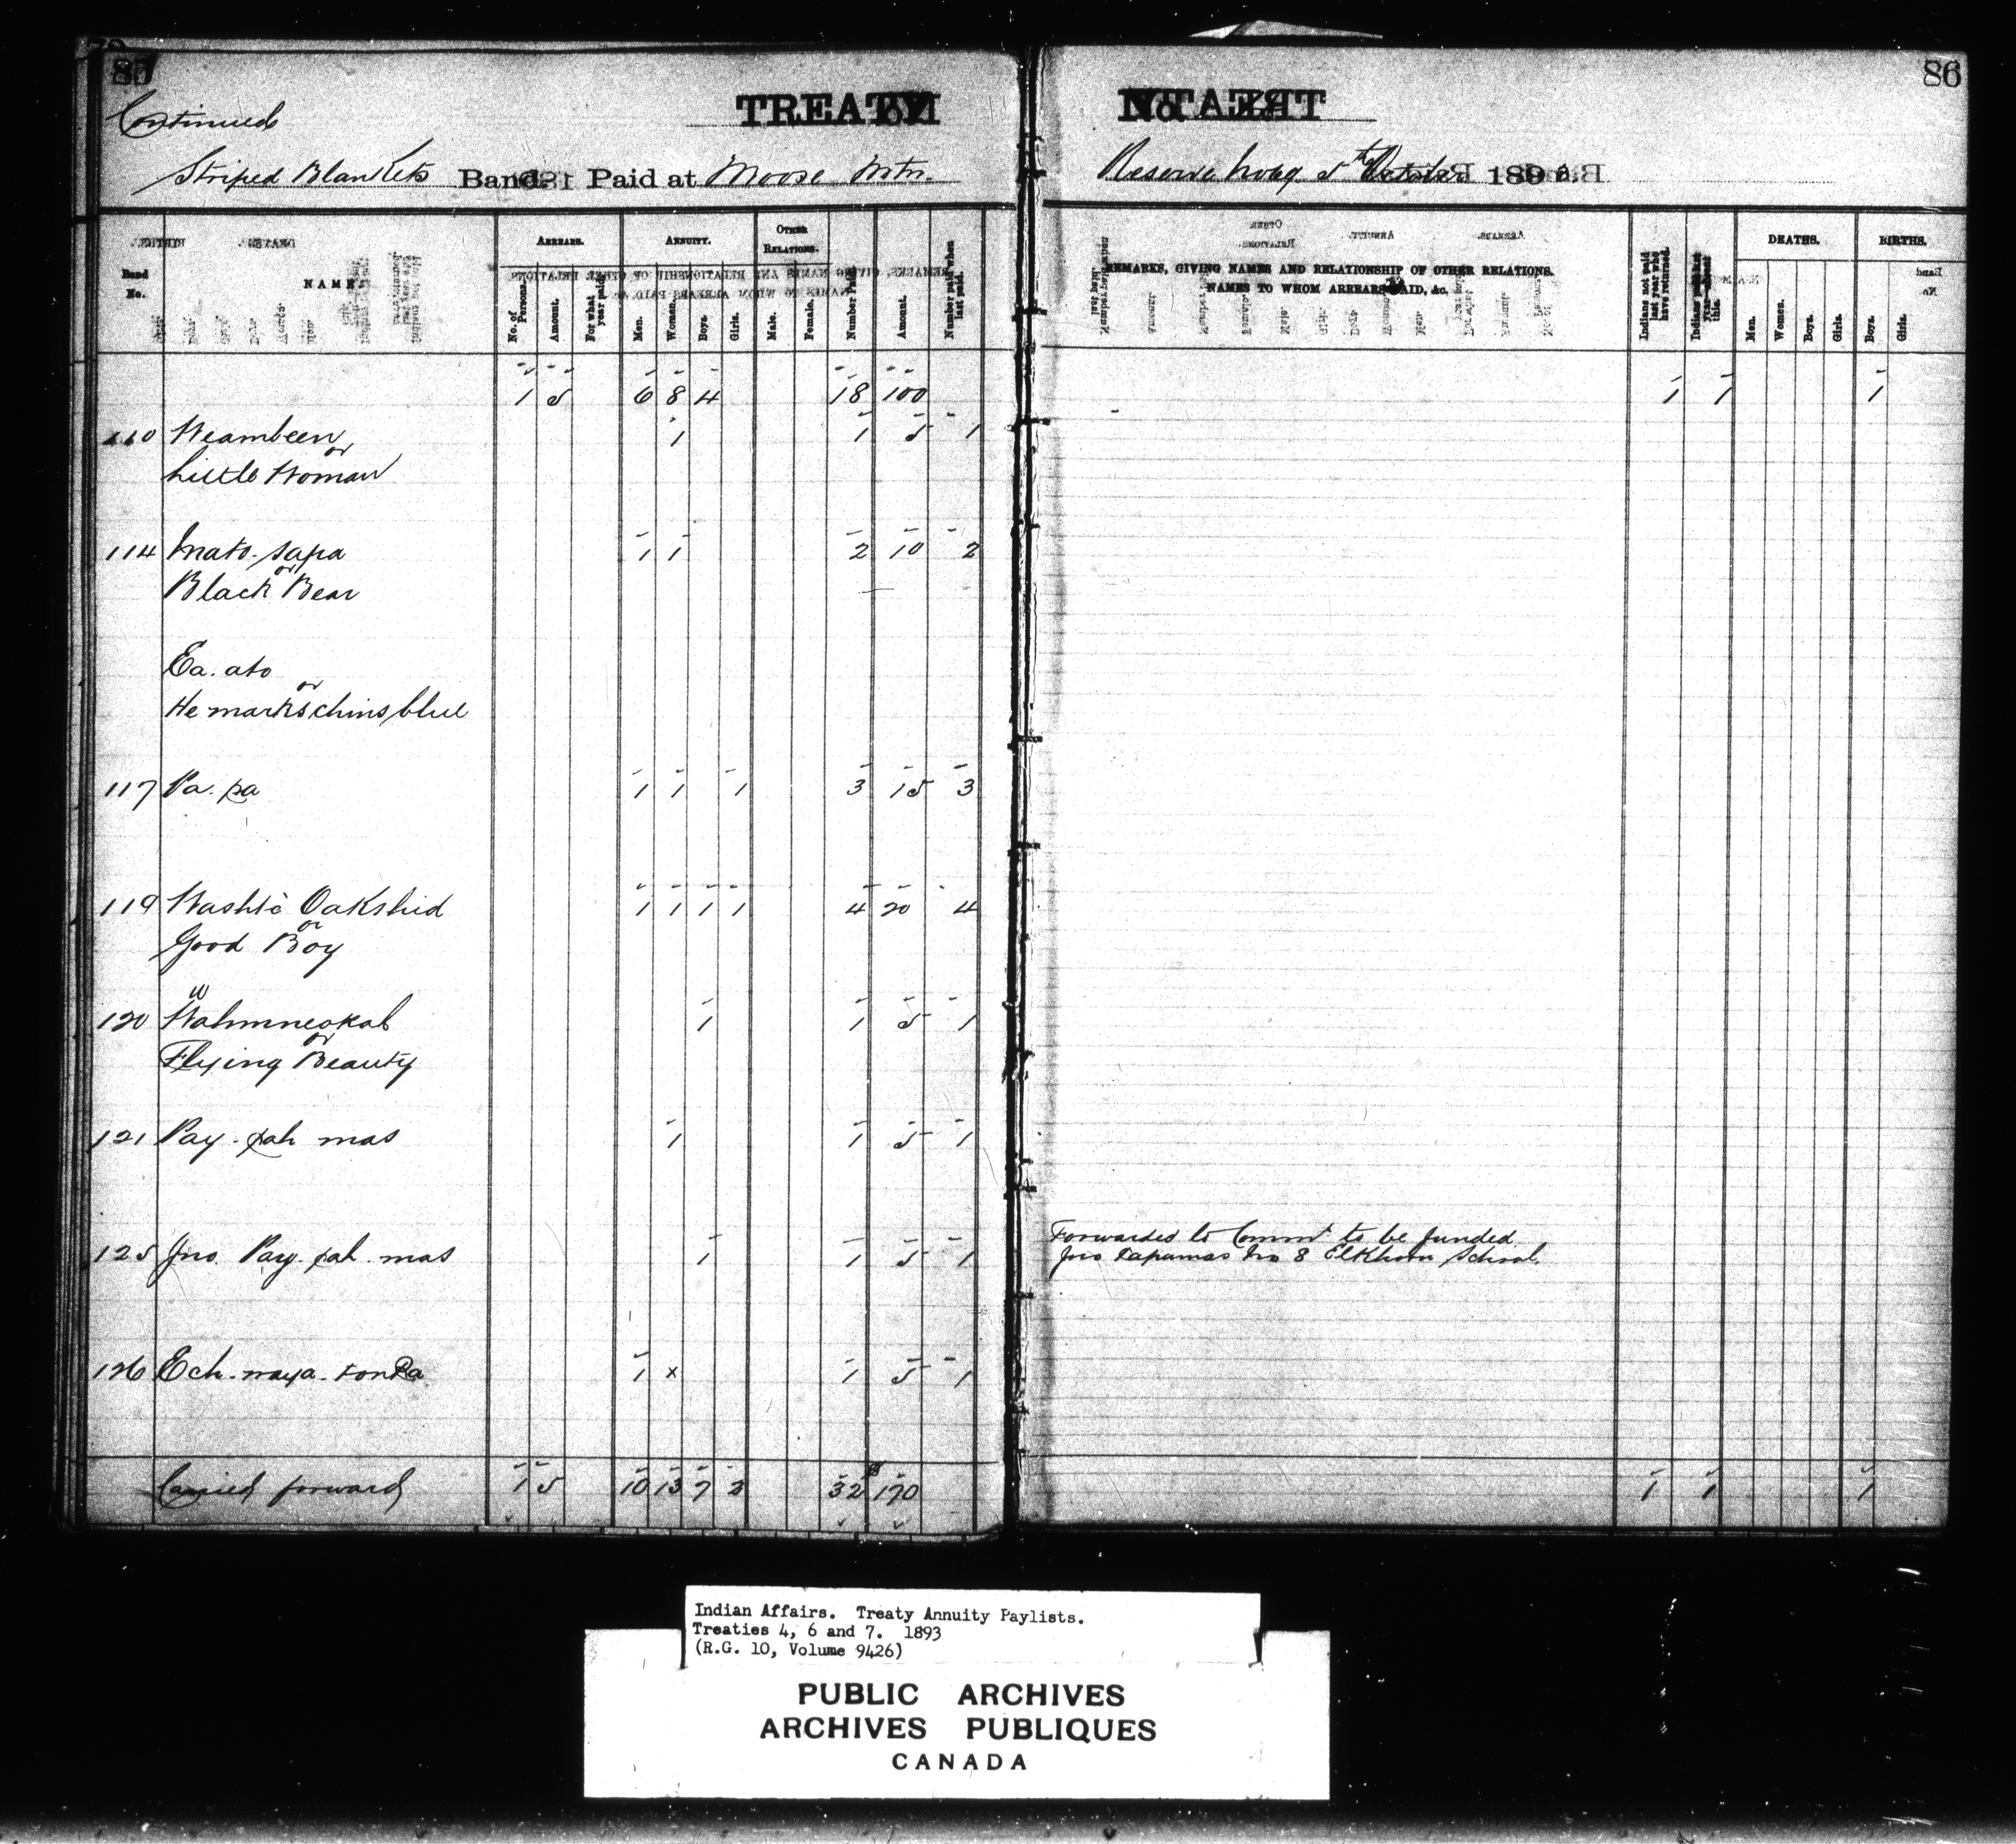 85
86
Continued
TREATY No.
Striped Blankets Band. Paid at Moose Mtn.
Reserve 5th October 1893.
Band No.
NAME.
ARREARS.
No. of Persons.
Amount.
For what year paid.
ANNUITY.
Men.
Women.
Boys.
Girls.
OTHER RELATIONS.
Male.
Female.
Number Paid.
Amount.
Number paid when last paid.
REMARKS, GIVING NAMES AND RELATIONSHIP OF OTHER RELATIONS.
NAMES TO WHOM ARREARS PAID, &c.
Indians not paid last year who have returned.
DEATHS.
Men.
Women.
Boys.
Girls.
BIRTHS.
Boys.
Girls.
1 5 6 8 4 18 100 1 1 1
110 Weambeen 1 1 5 1
or
Little Woman
114 Mato-sapa 1 1 2 10 2
or
Black Bear
Ea. ato
or
He marks chins blue
117 Pa. pa 1 1 1 3 15 3
119 Washtè Oakshid 1 1 1 1 4 20 4
or
Good Boy
120 Wahmneokah 1 1 5 1
or
Flying Beauty
121 Pay-pah mas 1 1 5 1
Forwarded to Commr to be funded
125 Jno. Pay-pah-mas 1 1 5 1 Jno Papamas No 8 Elkhorn School.
126 Ech-naya-tonka 1 x 1 5 1
Carried forward 1 5 10 13 7 2 32 $170 1 1 1
Indian Affairs. Treaty Annuity Paylists.
Treaties 4, 6 and 7. 1893
(R.G. 10, Volume 9426)
PUBLIC ARCHIVES
ARCHIVES PUBLIQUES
CANADA